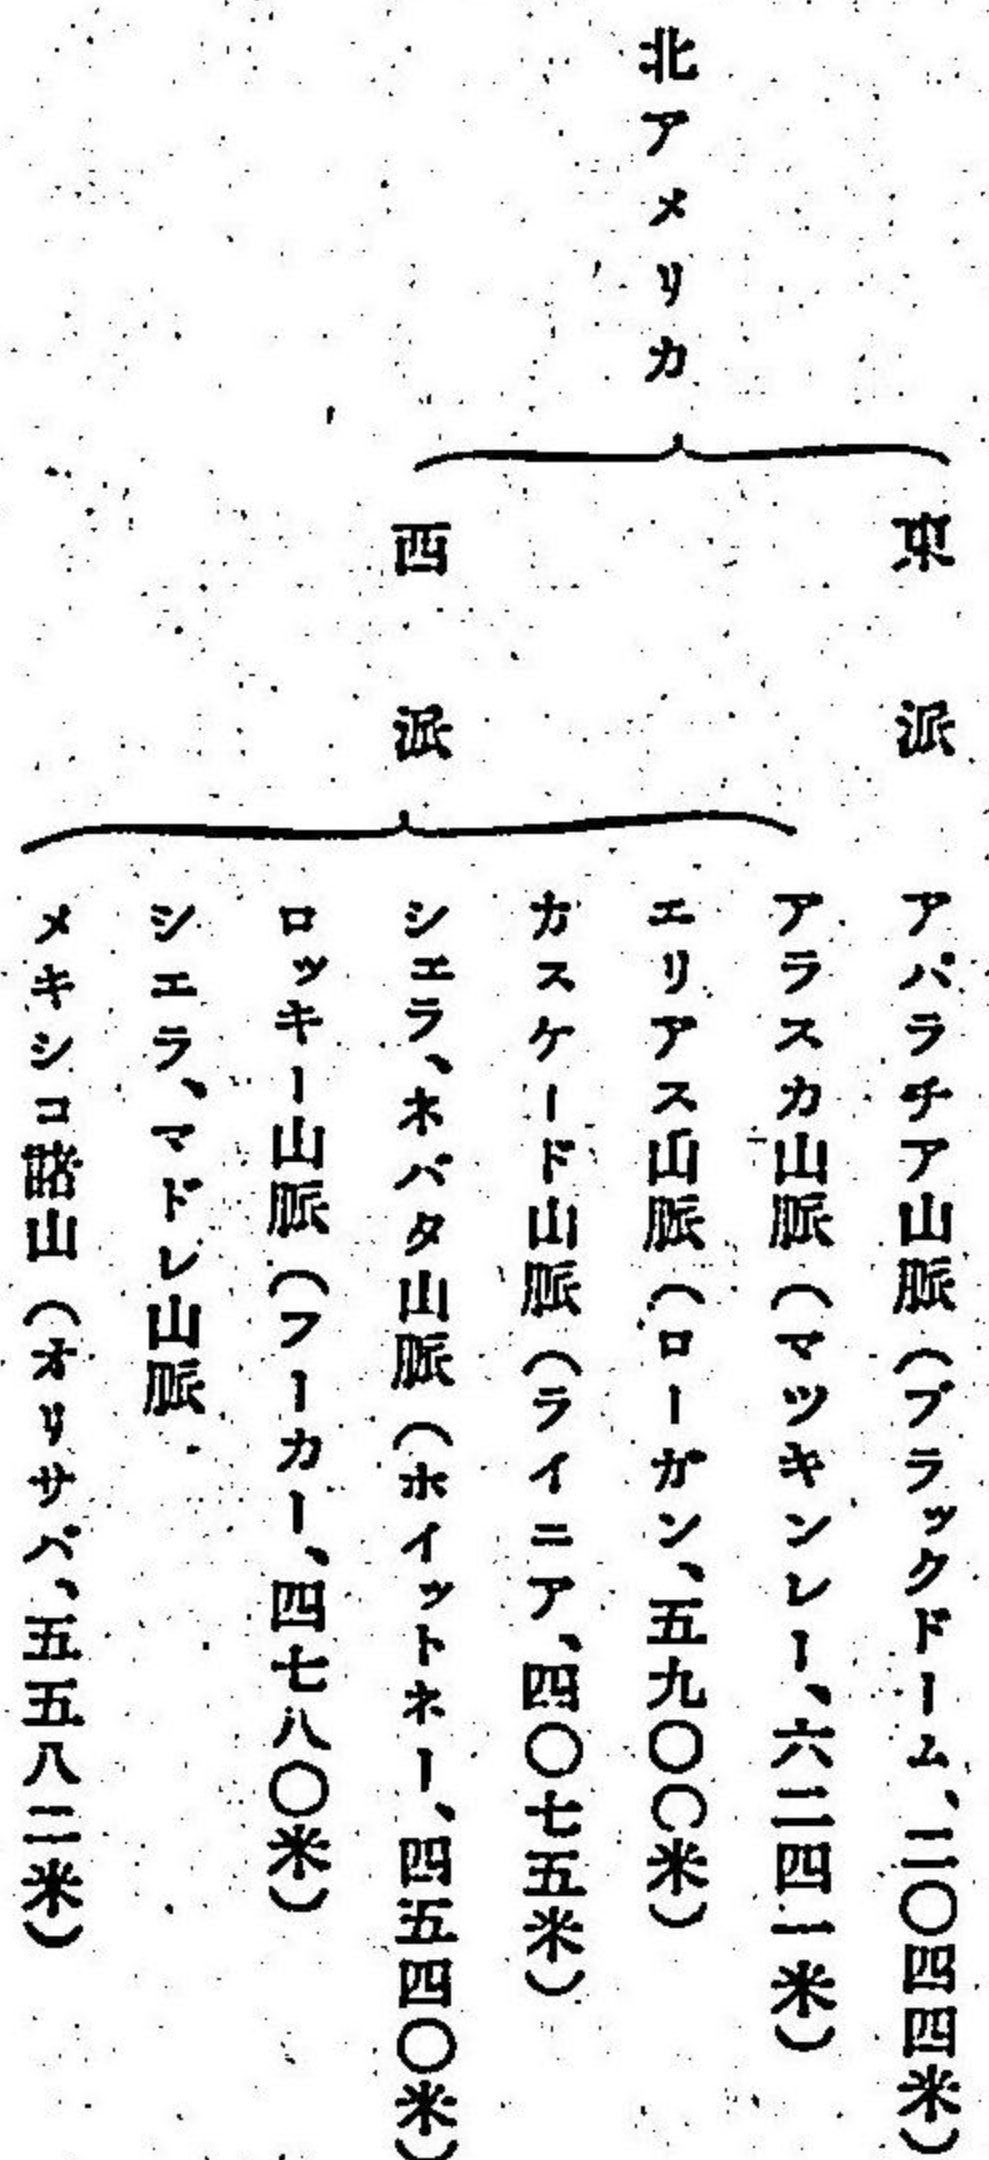 北アメリカ
東派
アパラチア山脈（ブラックドーム、二〇四四米）
西派
アラスカ山脈（マツキンレー、六二四一米）
エリアス山脈（ローガン、五九〇〇米）
カスケード山脈（ライニア、四〇七五米）
シエラ、ネバタ山脈（ホイットネー、四五四〇米）
ロッキー山脈（フーカー、四七八〇米）
シエラ、マドレ山脈
メキシコ諸山（オリサバ、五五八二米）